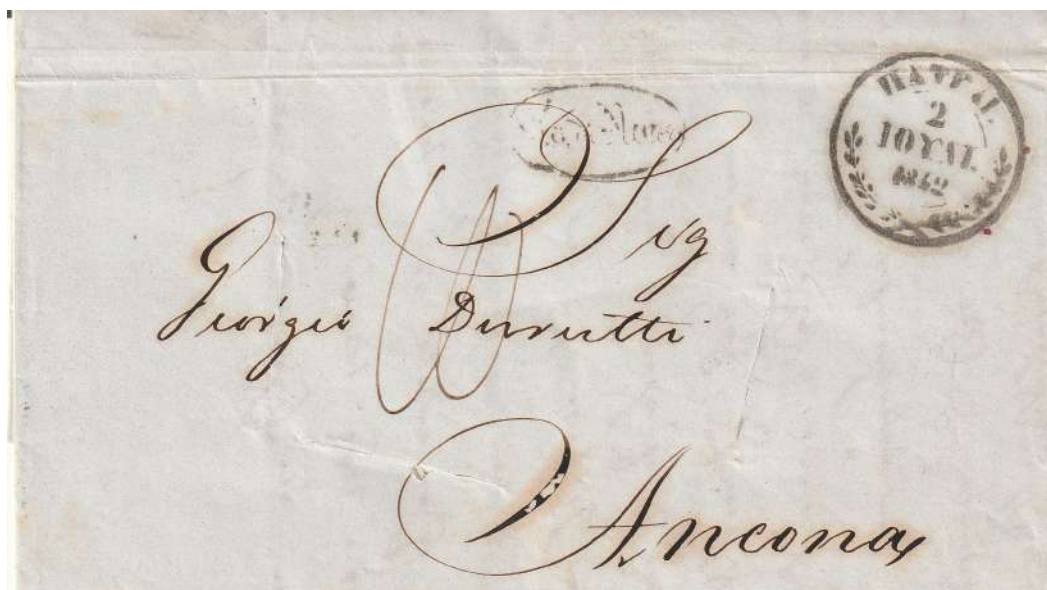 ΠΑΤΡΑΙ
2
ΙΟΥΛΙ
1842
Sig
Giorgio Durutti
Ancona